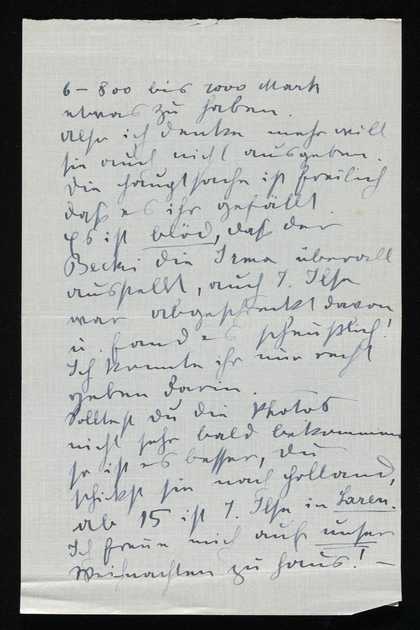 6 – 800 bis 1000 Mark
etwas zu haben.
Also ich denke mehr will
sie auch nicht ausgeben.
Die Hauptsache ist freilich
daß es ihr gefällt.
Es ist blöd, daß der
die Irma überall
ausstellt, auch T. Ilse
war abgeschreckt davon
u. fand es scheußlich!
Ich konnte ihr nur recht
geben darin.
Solltest du die Photos
nicht sehr bald bekommen
so ist es besser, du
schickst sie nach Holland,
ab 15 ist T. Ilse in Laren.
Ich freue mich auf unser
Weihnachten zu Haus! –